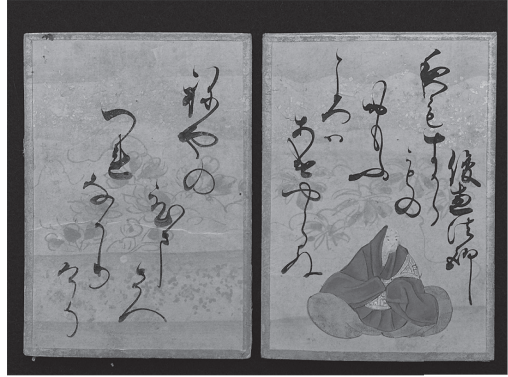 俊恵法師
夜もすから
もの
おもふ
ころハ
あけやらぬ
ねやの
ひま
さへ
つれ
なかり
けり